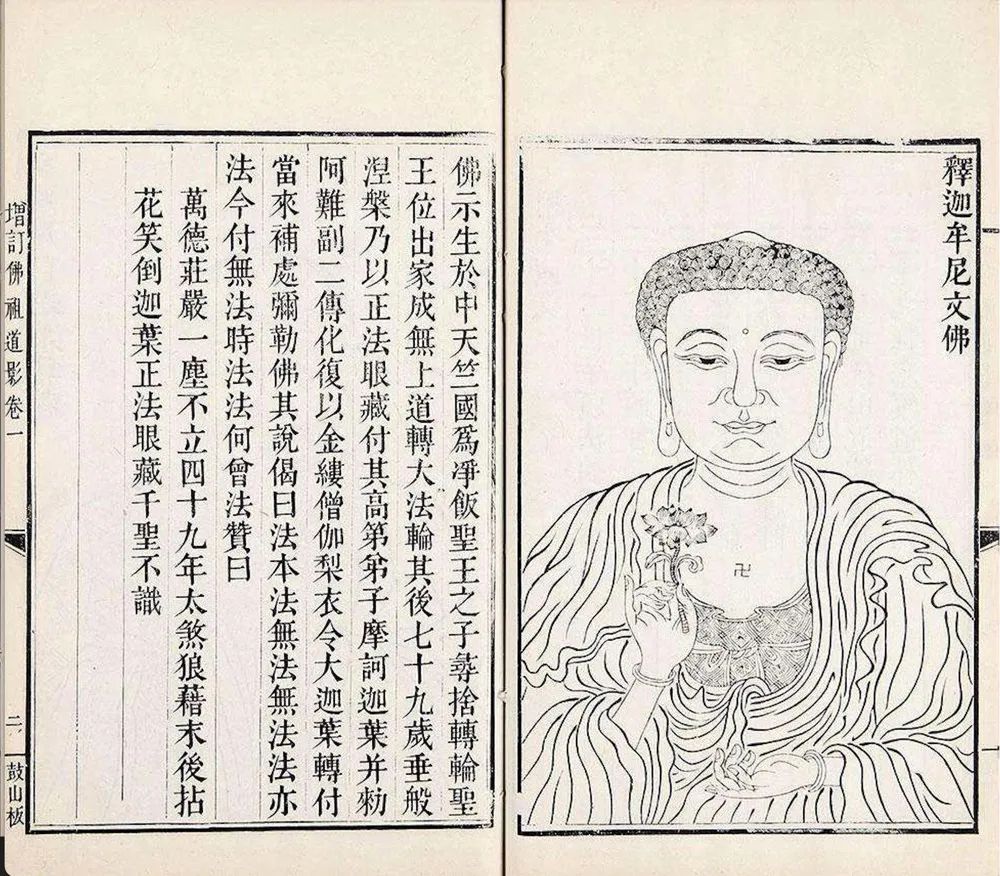 釋迦牟尼文佛
佛示生於中天竺國爲淨飯聖王之子蕁捨轉輪聖
王位出家成無上道轉大法輪其後七十九歲垂般
涅槃乃以正法眼藏付其高第弟子摩訶迦葉并勑
阿難副二傳化復以金縷僧伽梨衣令大迦葉轉付
當來補處彌勒佛其說偈曰法本法無法無法法亦
法今付無法時法法何曾法贊曰
萬德莊嚴一塵不立四十九年太煞狼藉末後拈
花笑倒迦葉正法眼藏千聖不識
增訂佛祖道影卷一
二
鼓山板
卍